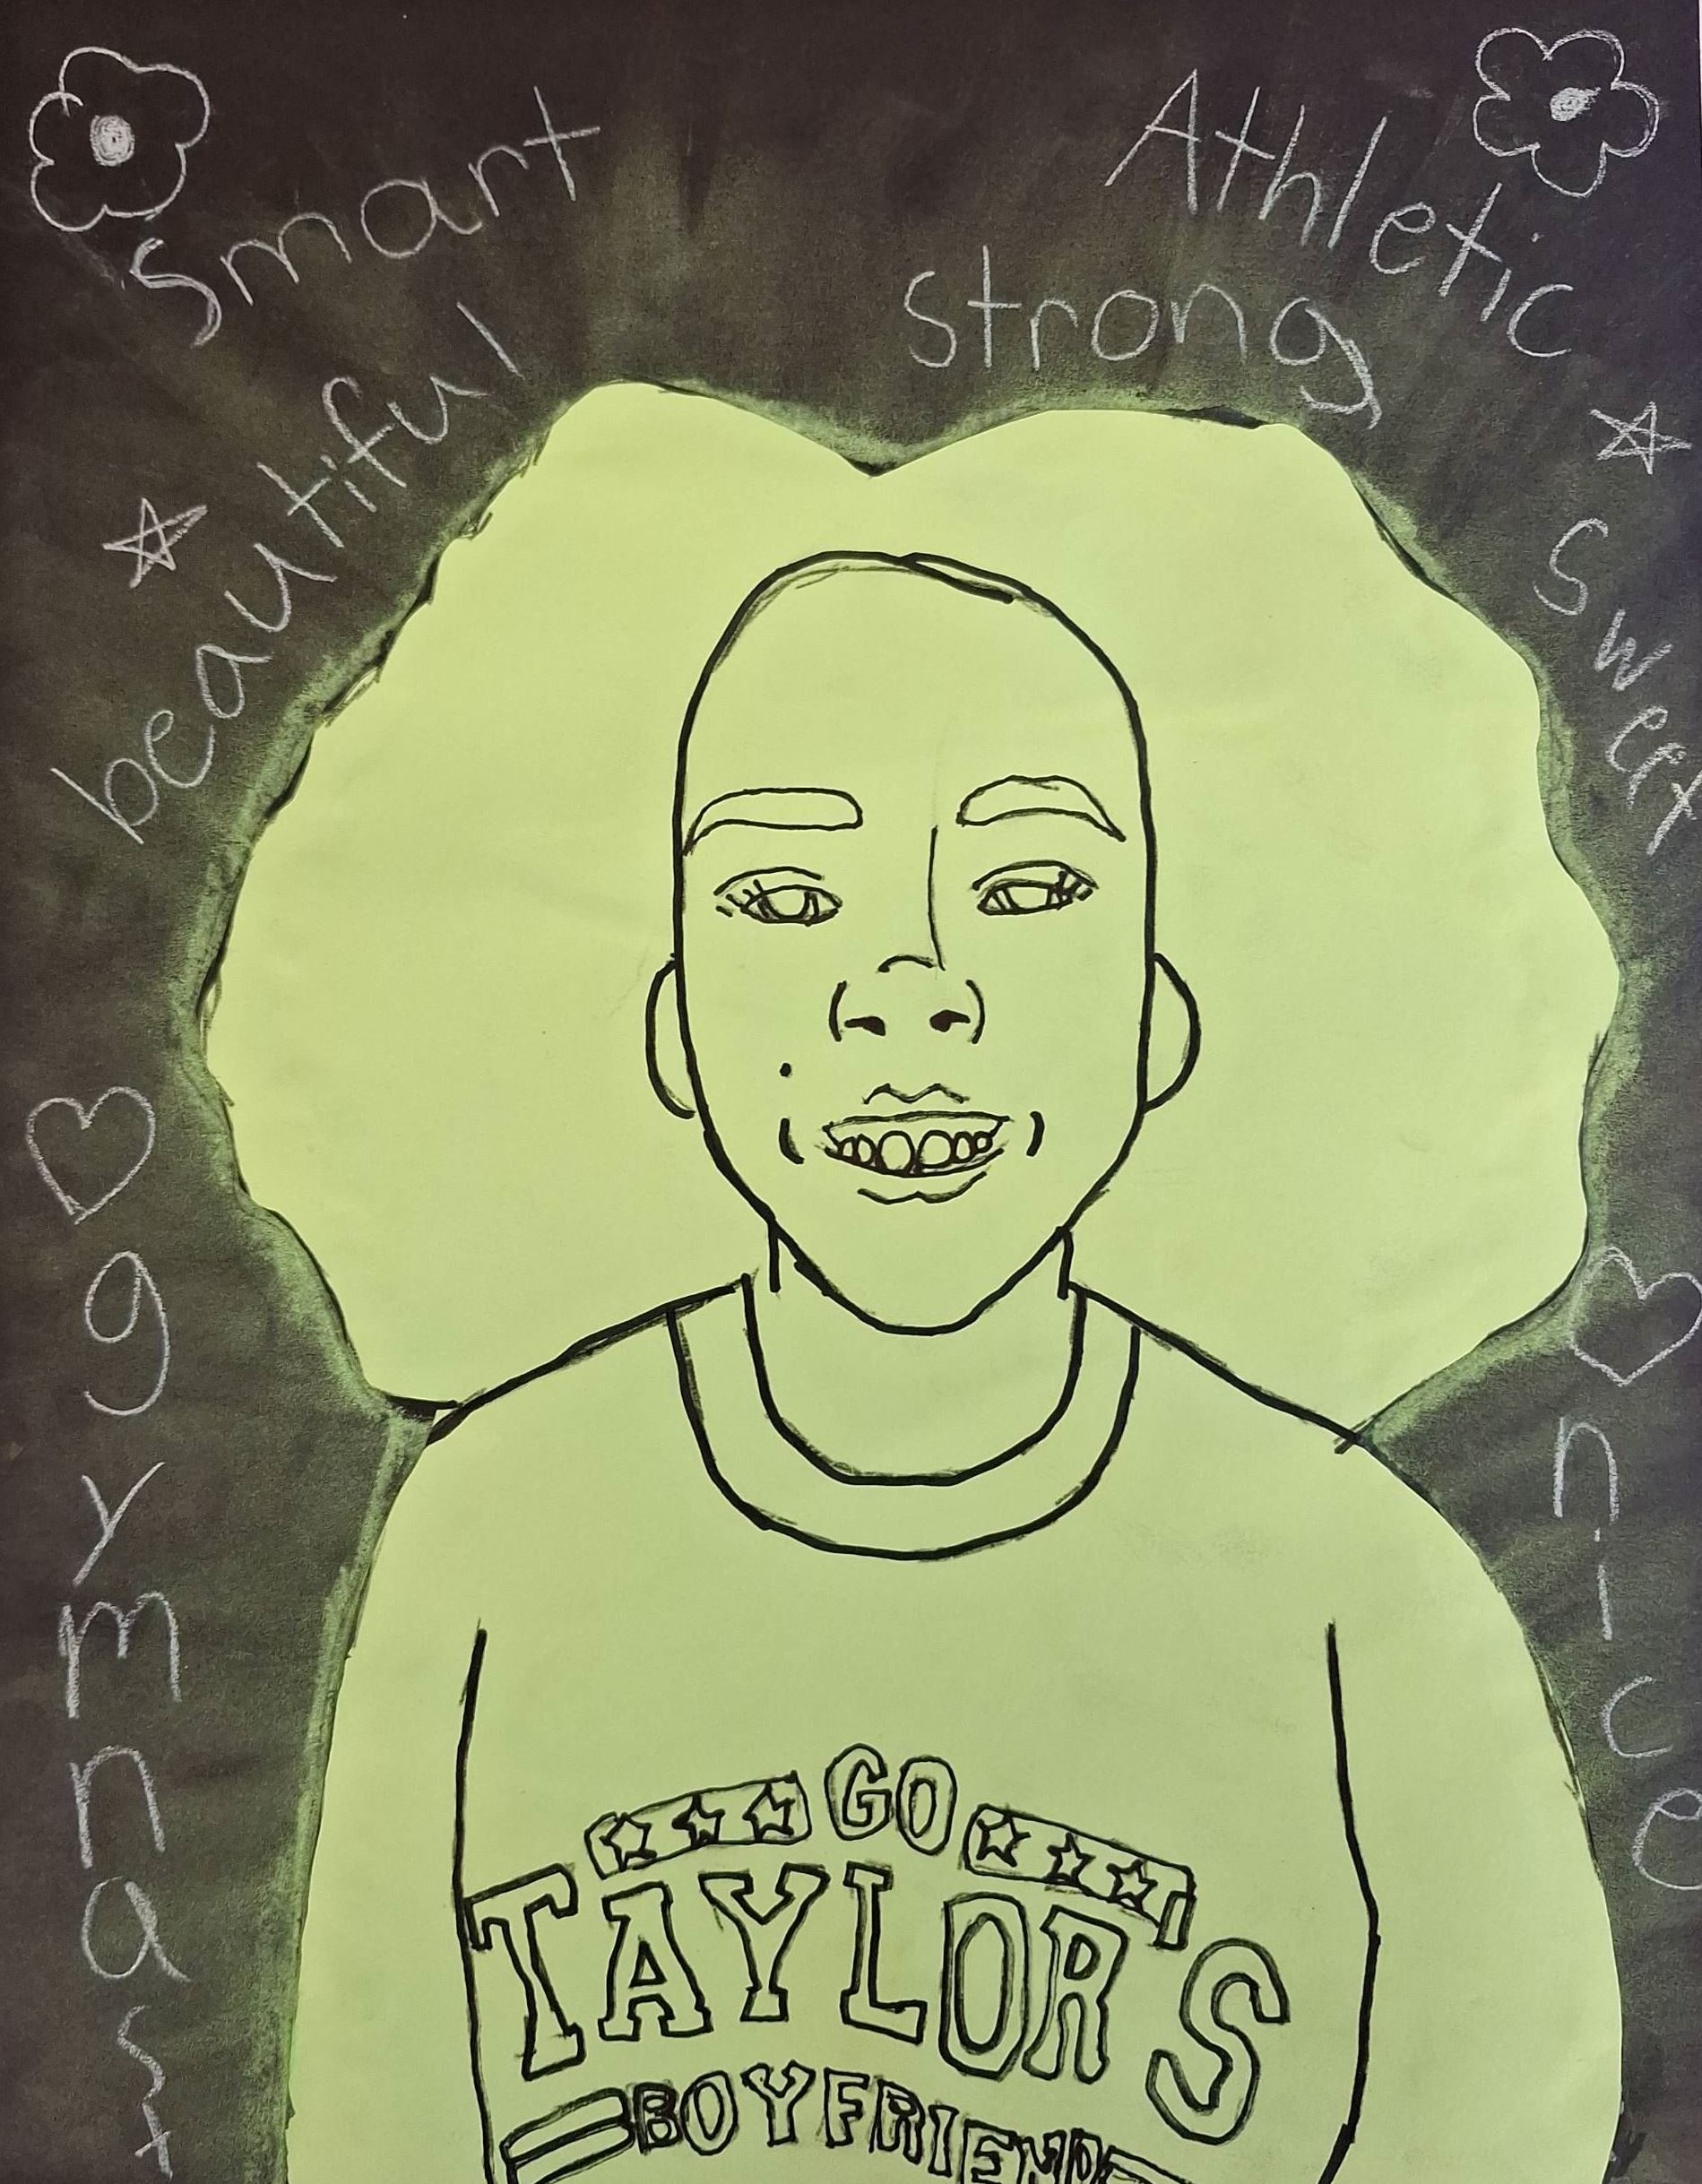 Smart
Athletic
beautiful
strong
sweet
gymnast
nice
GO
TAYLOR'S
BOYFRIEND